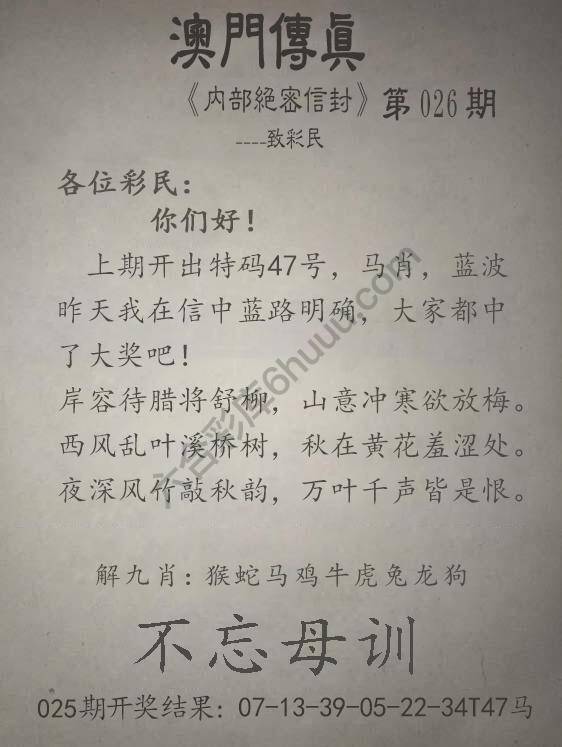 澳門傳眞
《内部絕密信封》第026期
----致彩民
各位彩民：
你们好！
上期开出特码47号，马肖，蓝波
昨天我在信中蓝路明确，大家都中
了大奖吧！
岸容待腊将舒柳，山意冲寒欲放梅。
西风乱叶溪桥树，秋在黄花羞涩处。
夜深风竹敲秋韵，万叶千声皆是恨。
解九肖：猴蛇马鸡牛虎兔龙狗
不忘母训
025期开奖结果：07-13-39-05-22-34T47马
六合彩库6huuu.com